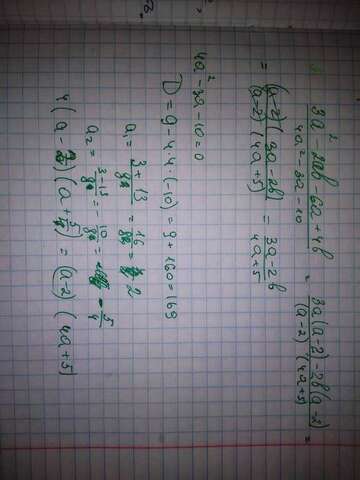 (3a² - 2ab - 6a + 4b) / (4a² - 3a - 10) = (3a(a-2) - 2b(a-2)) / ((a-2)(4a+5)) =
= ((a-2)(3a-2b)) / ((a-2)(4a+5)) = (3a-2b) / (4a+5)
4a² - 3a - 10 = 0
D = 9 - 4·4·(-10) = 9 + 160 = 169
a₁ = (3+13)/8 = 16/8 = 2
a₂ = (3-13)/8 = -10/8 = -5/4
4(a-2)(a+5/4) = (a-2)(4a+5)